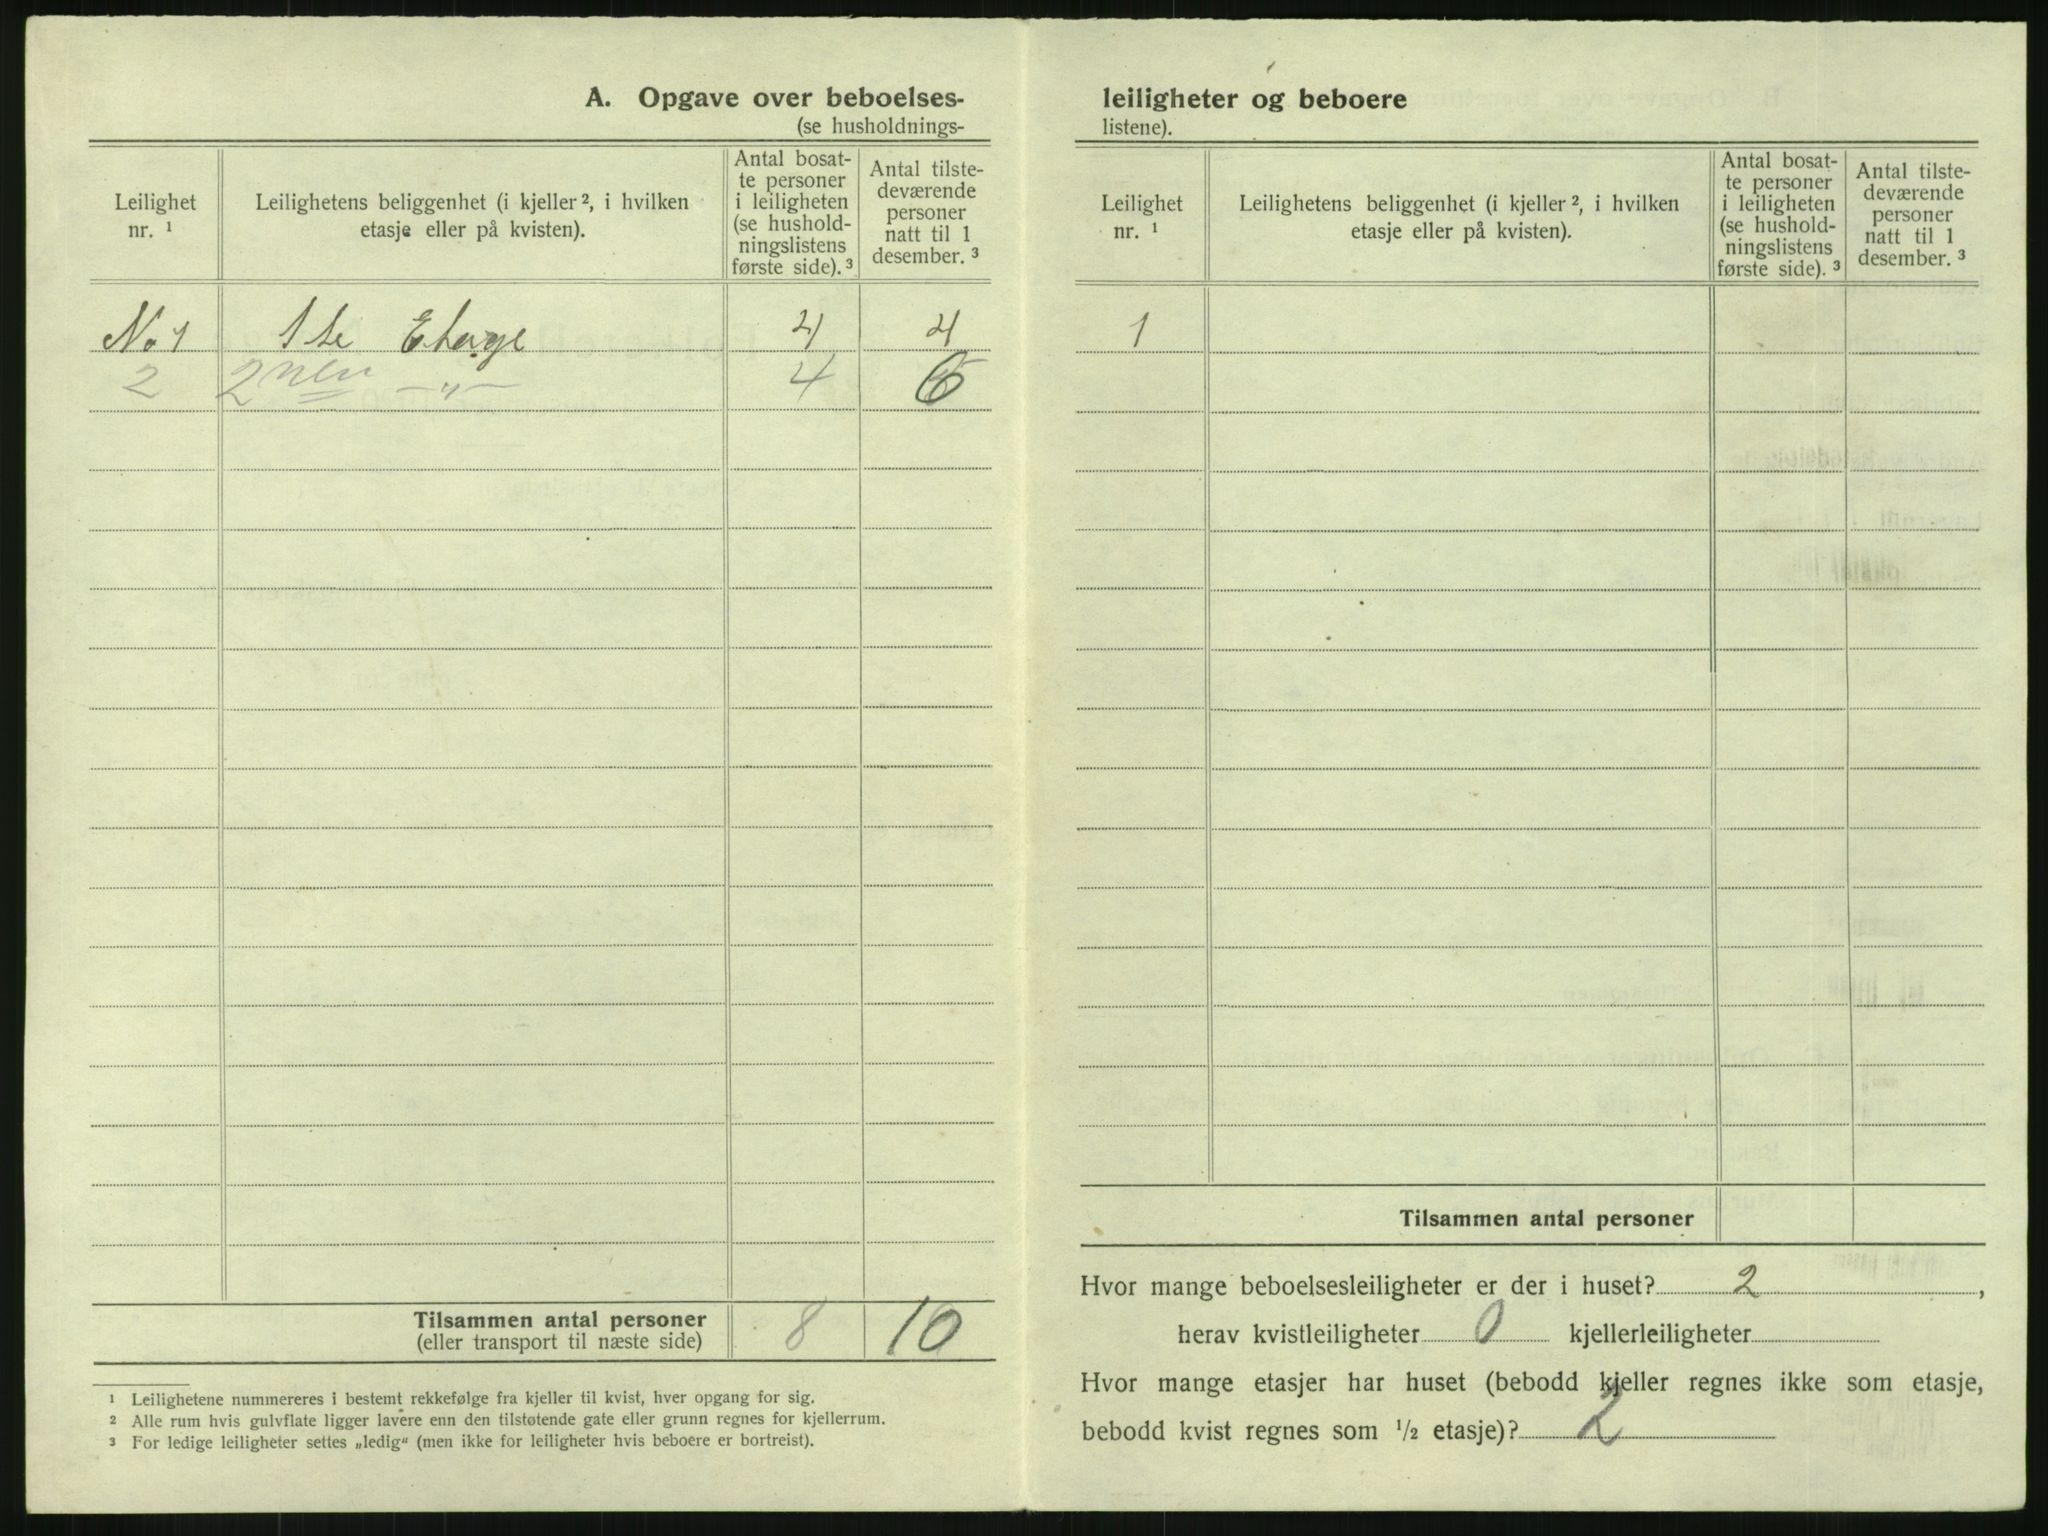 A. Opgave over beboelses-
(se husholdnings-
Leilighet
nr. ¹
Leilighetens beliggenhet (i kjeller ², i hvilken
etasje eller på kvisten).
Antal bosat-
te personer
i leiligheten
(se hushold-
ningslistens
første side). ³
Antal tilste-
deværende
personer
natt til 1
desember. ³
No 1 1 ste Etage 4 4
2 2nen —„— 4 6
Tilsammen antal personer
(eller transport til næste side) 8 10
¹ Leilighetene nummereres i bestemt rekkefølge fra kjeller til kvist, hver opgang for sig.
² Alle rum hvis gulvflate ligger lavere enn den tilstøtende gate eller grunn regnes for kjellerrum.
³ For ledige leiligheter settes „ledig“ (men ikke for leiligheter hvis beboere er bortreist).
leiligheter og beboere
listene).
Leilighet
nr. ¹
Leilighetens beliggenhet (i kjeller ², i hvilken
etasje eller på kvisten).
Antal bosat-
te personer
i leiligheten
(se hushold-
ningslistens
første side). ³
Antal tilste-
deværende
personer
natt til 1
desember. ³
1
Tilsammen antal personer
Hvor mange beboelsesleiligheter er der i huset? 2 ,
herav kvistleiligheter 0 kjellerleiligheter
Hvor mange etasjer har huset (bebodd kjeller regnes ikke som etasje,
bebodd kvist regnes som ½ etasje)? 2